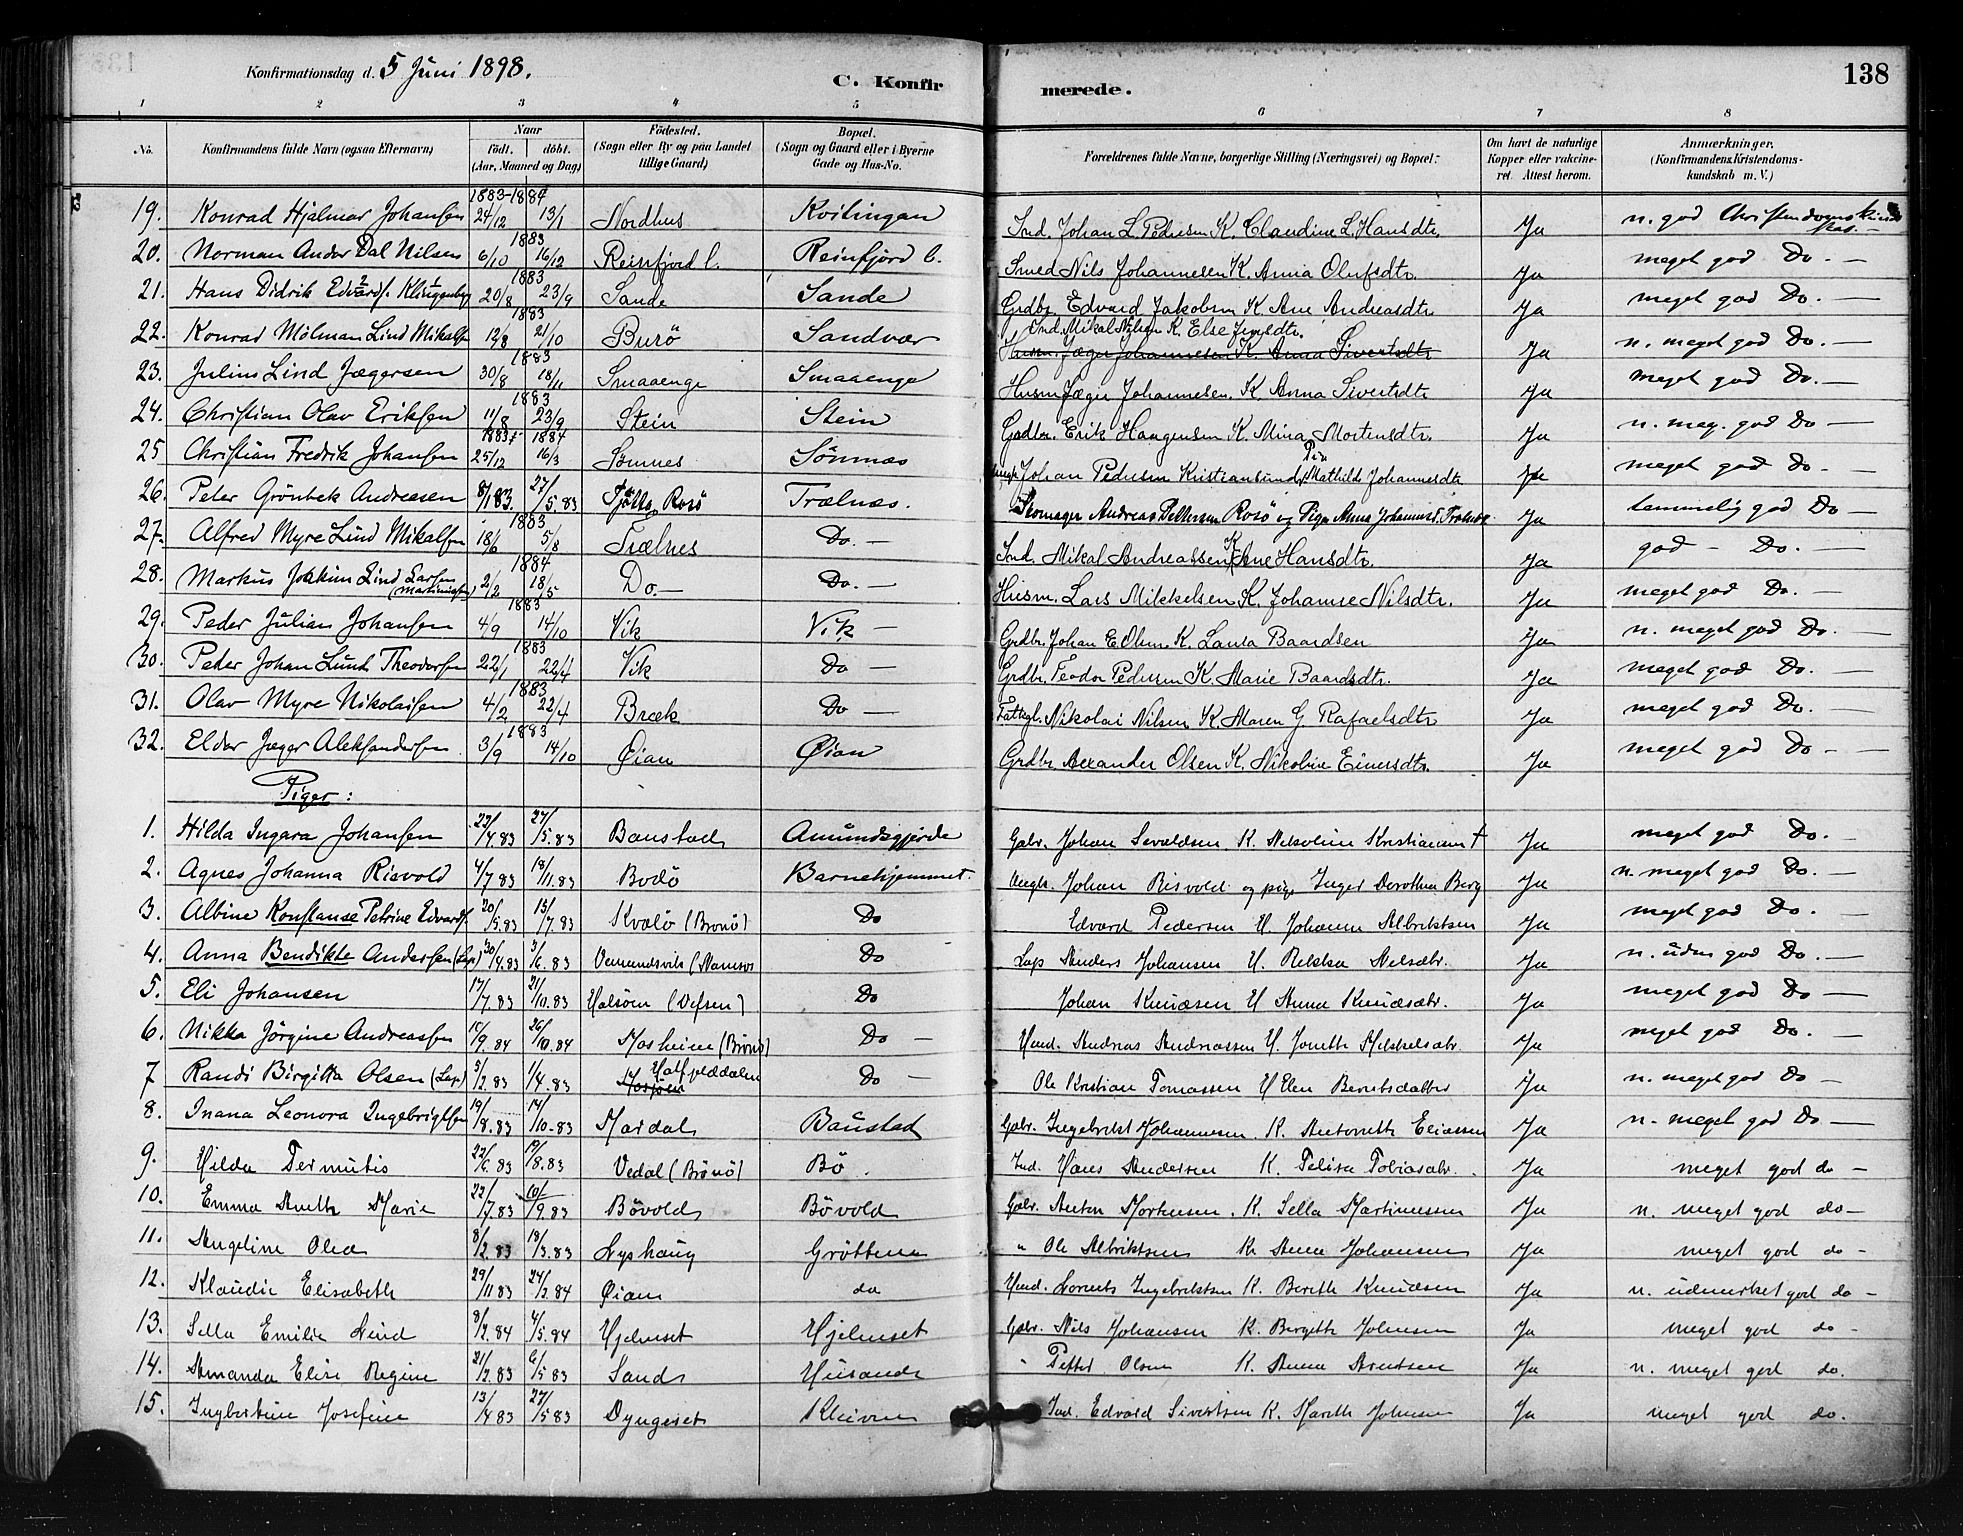 Konfirmationsdag d. 5 Juni 1898. C. Konfir merede. 138
1 2 3 4 5 6 7 8
No. Konfirmandens fulde Navn (ogsaa Efternavn) Naar födt. döbt. (Aar, Maaned og Dag) Födested. (Sogn eller By og paa Landet tillige Gaard) Bopæl. (Sogn og Gaard eller i Byerne Gade og Hus-No. Forældrenes fulde Navne, borgerlige Stilling (Næringsvei) og Bopæl: Om havt de naturlige Kopper eller vakcineret. Attest herom. Anmærkninger. (Konfirmandens Kristendomskundskab m. V.)
19. Konrad Hjalmar Johansen 1883-1884 24/12 13/1 Nordhus Kvitingan Ind. Johan L Pedersen K. Claudine L. Hansdtr. Ja n. god Christendomskundskab. -
20. Norman Ander Dal Nilsen 1883 6/10 16/12 Reinfjord l. Reinfjord l. Smed Nils Johannesen K. Anna Olufsdtr. Ja meget god Do. -
21. Hans Didrik Edvards. Klinggenberg 1883 20/8 23/9 Sande Sande Grdbr. Edvard Jakobsen K Ane Andreasdtr Ja meget god Do. -
22. Konrad Mölman Lind Mikalsen 1883 12/8 21/10 Burö Sandvær Ind. Mikal Nilsen K. Else Husm. Jæger Johannesen K. Anna Sivertsdtr Ja n. meget god Do. -
23. Julius Lind Jægersen 1883 30/8 18/11 Smaaenge Smaaenge Husm Jæger Johannesen. K. Anna Sivertsdtr Ja meget god Do. -
24. Christian Olav Eriksen 1883 11/8 23/9 Stein Stein Grdbr. Erik Haagensen K. Mina Mortensdtr. Ja n. meg. god Do -
25 Christian Fredrik Johansen 1883 1884 25/12 16/3 Sömnes Sömnæs Johan Pedersen Kristiansund Mathilde Johannesdtr Ja meget god Do. -
26. Peter Grönbek Andreasen 8/1 83. 27/5.83 Tjötta Rosö Trælnæs. Skomager Andreas Pettersen Rosö og Pige Anna Johannesd. Trælnes Ja temmelig god Do -
27. Alfred Myre Lind Mikalsen 1883 18/6 5/8 Trælnes Do. - Ind. Mikal Andreassen K Ane Hansdtr. Ja god - Do. -
28. Markus Joakim Lind Larsen (Martinussen) 1884 2/2 18/5 Do. - Do. - Husm. Lars Mikkelsen K. Johanne Nilsdtr. Ja meget god Do. -
29. Peder Julian Johansen 1883 4/9 14/10 Vik Vik - Grdbr. Johan E Olsen K. Laura Baardsen Ja n. meget god Do. -
30. Peter Johan Lund Theodorsen 1883 22/1 22/4 Vik Do - Grdbr. Teodor Pedersen K. Marie Baardsdtr. Ja meget god Do. -
31. Olav Myre Nikolaisen 1883 4/2 22/4 Bræk Do - Fattigl. Nikolai Nilsen K Maren G. Rafaelsdtr Ja meget god Do. -
32. Elder Jæger Aleksandersen. 1883 3/9 14/10 Øian Øian Grdbr. Alexander Olsen K. Nikoline Einersdtr. Ja meget god Do - -
Piger:
1. Hilda Ingara Johansen 22/4.83 27/5.83 Baustad Amundsgjerde Gabr. Johan Sevaldsen K. Nikoline Kristiansen † Ja meget god Do. -
2. Agnes Johanna Risvold 4/7 83 18/11.83 Bodö Barnehjemmet. Johan Risvold og pige Inger Dorothea Berg Ja n. meget god Do. -
3. Albine Konstanse Petrine Edvards. 20/5.83 13/7.83 Kvalö (Brönö) Do Edvard Pedersen H. Johanna Albriktsen Ja meget god Do. -
4. Anna Bendikte Andersen (Lap.) 30/4.83 3/6.83 Vemundsvik (Namsos Do Lap Anders Johansen H. Nelsdtr. Ja n. udm god Do -
5. Eli Johansen 17/7.83 21/10.83 Halsöen (Vefsen) Do Johan Knudsen H Anna Knudsdtr. Ja meget god Do -
6. Nikka Jörgine Andreassen 10/9.84 26/10.84 Mosheim (Brönö) Do - Husd. Andreas Andreassen H. Joneth Mikkelsdtr. Ja meget god Do. -
7 Randi Birgitta Olsen (Lap.) 3/2.83 1/4.83 Hatfjelddalen Mosjöen Do - Ole Kristian Tomassen H Elen Berntsdatter Ja n. meget god Do
8. Inana Leonora Ingebrigtsen 19/8.83 14/10-83 Mardal Baustad Gabr. Ingebrikt Johannesen. K. Antoneth Eliassen Ja n. meget god Do -
9. Hilda Termutis 22/6.83 19/8.83 Vedal (Brönö) Bö. Ind. Hans Andersen K. Felixa Tobiasdtr. Ja meget god do -
10. Emma Aneth Marie 22/7.83 10/9.83 Bövold Bövold Gabr. Anton Mortensen. K. Sella Martinussen Ja n. meget god do -
11. Angeline Olea 8/2.83 18/3.83 Nyshaug Gröttem " Ole Albriktsen K. Anna Johansen Ja meget god do -
12. Klaudie Elisabeth 29/11 83 24/2.84 Øian do Husd. Lornts Ingebriktsen K. Bereth Knudsen Ja n. udmerket god do -
13. Sella Emilie Lund 8/2.84 4/5.84 Hjelmset Hjelmset Gabr. Nils Johansen K. Bergeth Johnsen Ja meget god do -
14. Amanda Elise Regine 21/2.83 6/5 83 Sand Husand " Petter Olsen K. Anna Arentsen Ja n. meget god do.
15. Ingbertine Josefine 13/4 83 27/5 83 Dyngeset Kleiven Ind. Edvard Sivertsen K. Mareth Johnsen Ja meget god do.